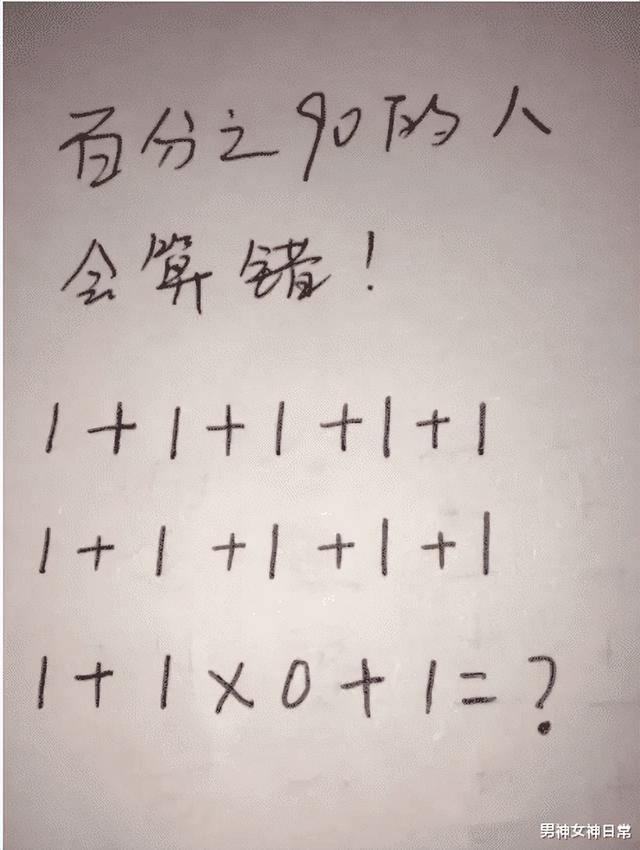 百分之90的人
会算错!
1+1+1+1+1
1+1+1+1+1
1+1×0+1=?
男神女神日常